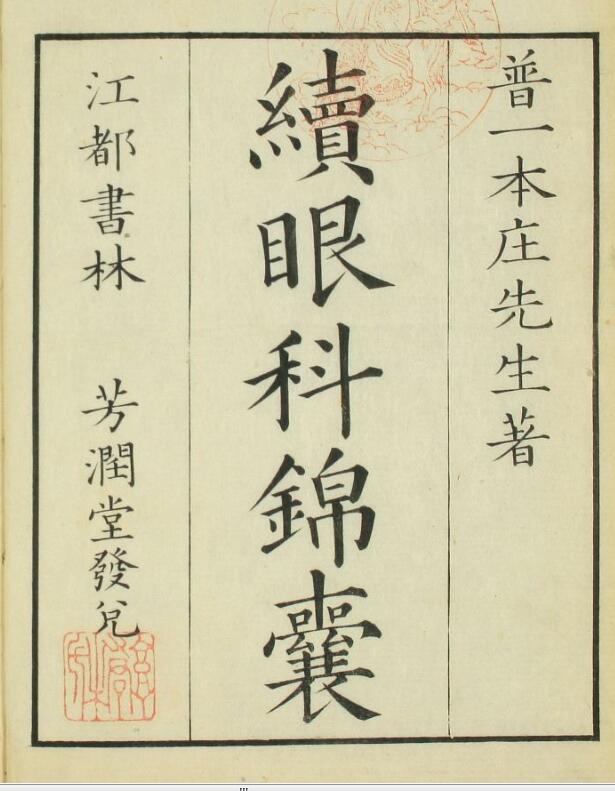 普一本庄先生著
續眼科錦囊
江都書林 芳潤堂發兌